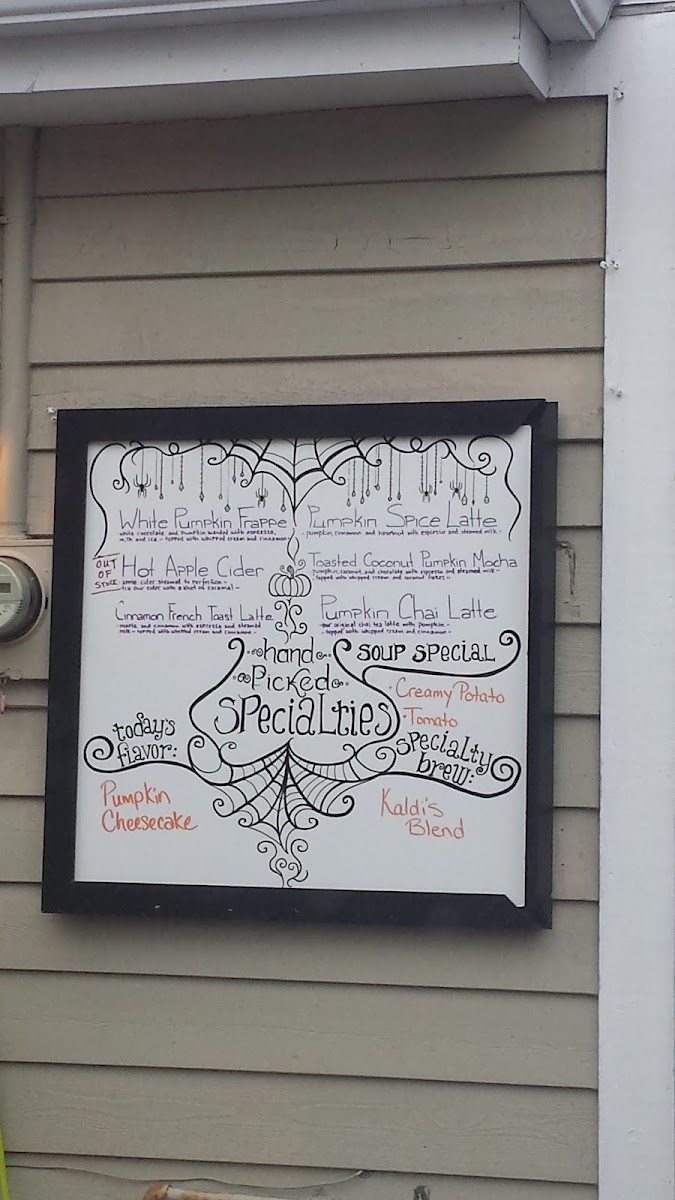 White Pumpkin Frappe
white chocolate and pumpkin blended with espresso,
milk and ice - topped with whipped cream and cinnamon -
OUT
OF
STOCK
Hot Apple Cider
apple cider steamed to perfection -
try our cider with a shot of caramel -
Cinnamon French Toast Latte
maple and cinnamon with espresso and steamed
milk - topped with whipped cream and cinnamon -
Pumpkin Spice Latte
- pumpkin, cinnamon and hazelnut with espresso and steamed milk -
Toasted Coconut Pumpkin Mocha
pumpkin, coconut, and chocolate with espresso and steamed milk -
topped with whipped cream and coconut flakes -
Pumpkin Chai Latte
- our original chai tea latte with pumpkin -
- topped with whipped cream and cinnamon -
hand
Picked
Specialties
soup special
· Creamy Potato
· Tomato
today's
flavor:
Pumpkin
Cheesecake
specialty
brew:
Kaldi's
Blend